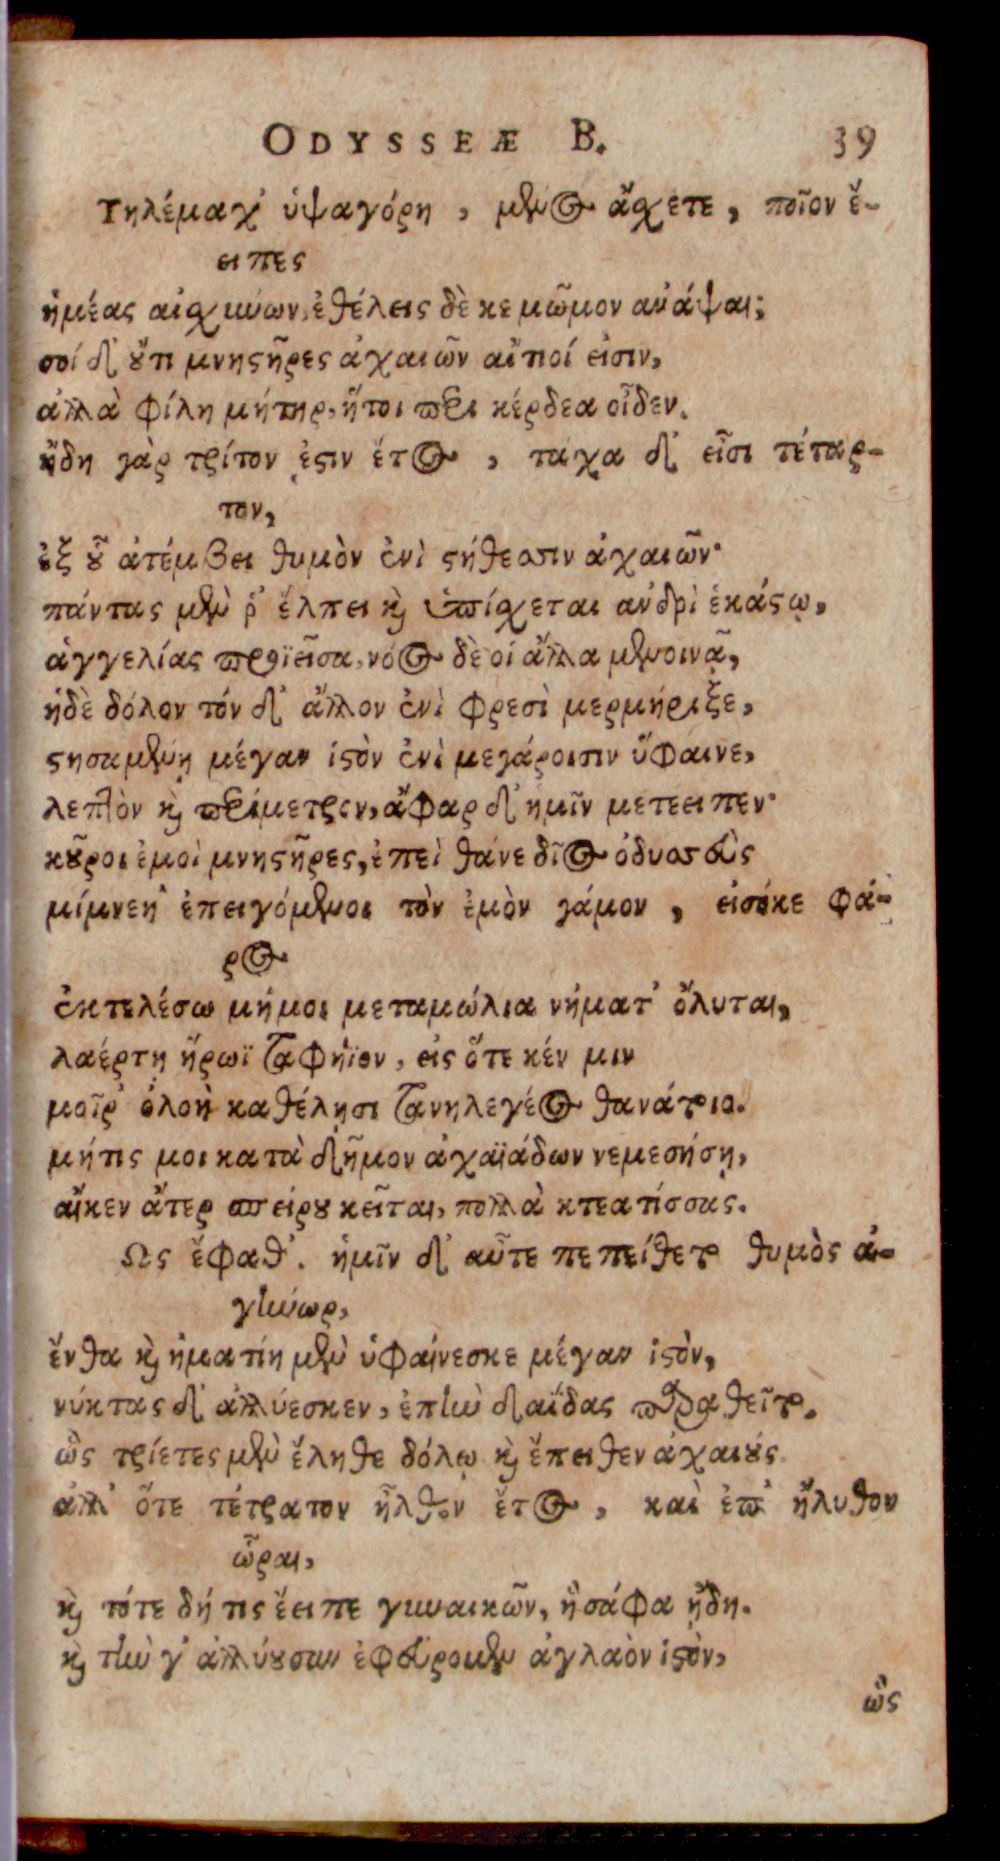 ODYSSEÆ B. 39
Τηλέμαχ' ὑψαγόρη, μένος ἄχετε, ποῖον ἔ-
ειπες
ἡμέας αἰχύνων, ἐθέλεις δὲ κε μῶμον ανάψαι;
σοί δ' οὔτι μνηστῆρες ἀχαιῶν αἴτιοί εἰσιν,
ἀλλὰ φίλη μήτηρ, ἥτοι περι κέρδεα οἶδεν.
ἤδη γὰρ τρίτον ἐστιν ἔτος, τάχα δ' εἶσι τέταρ-
τον,
ἐξ οὗ ἀτέμβει θυμὸν ἐνὶ στήθεσσιν ἀχαιῶν·
πάντας μὲν ῥ' ἔλπει καὶ ὑπίχεται ανδρὶ ἑκάστῳ,
ἀγγελίας προϊεῖσα, νόος δὲ οἱ ἄλλα μενοινᾷ,
ἠδὲ δόλον τόν δ' ἄλλον ἐνὶ φρεσὶ μερμήριξε,
στησαμένη μέγαν ἱστὸν ἐνὶ μεγάροισιν ὕφαινε,
λεπτὸν καὶ περίμετρον, ἄφαρ δ' ἡμῖν μετεειπεν·
κοῦροι ἐμοὶ μνηστῆρες, ἐπεὶ θάνε δῖος ὀδυσσεὺς
μίμνετ' ἐπειγόμενοι τὸν ἐμὸν γάμον, εἰσόκε φά-
ρος
ἐκτελέσω μήμοι μεταμώλια νήματ' ὄληται,
λαέρτῃ ἥρωϊ ταφήϊον, εἰς ὅτε κέν μιν
μοῖρ' ὀλοὴ καθέλησι τανηλεγέος θανάτοιο.
μήτις μοι κατὰ δῆμον ἀχαϊάδων νεμεσήσῃ,
αἴκεν ἄτερ σπείρου κεῖται, πολλὰ κτεατίσσας.
Ως ἔφαθ'. ἡμῖν δ' αὖτε πεπείθετο θυμὸς ἀ-
γήνωρ,
ἔνθα καὶ ἡματίη μὲν ὑφαίνεσκε μέγαν ἱστὸν,
νύκτας δ' ἀλλύεσκεν, ἐπὴν δαΐδας παραθεῖτο.
ὣς τρίετες μὲν ἔληθε δόλῳ καὶ ἔπειθεν ἀχαιούς.
ἀλλ' ὅτε τέτρατον ἦλθεν ἔτος, καὶ ἐπ' ἤλυθον
ὧραι,
καὶ τότε δή τις ἔειπε γυναικῶν, ἣ σάφα ᾔδη.
καὶ τὴν γ' ἀλλύουσαν ἐφεύρομεν ἀγλαὸν ἱστὸν,
ὣς